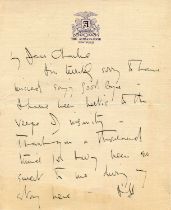 THE AMBASSADOR
My Dear Charlie
I'm terribly sorry to have
missed saying good bye
I have been hectic to the
verge of insanity –
Thank you a thousand
times for being so
sweet to me during my
stay here